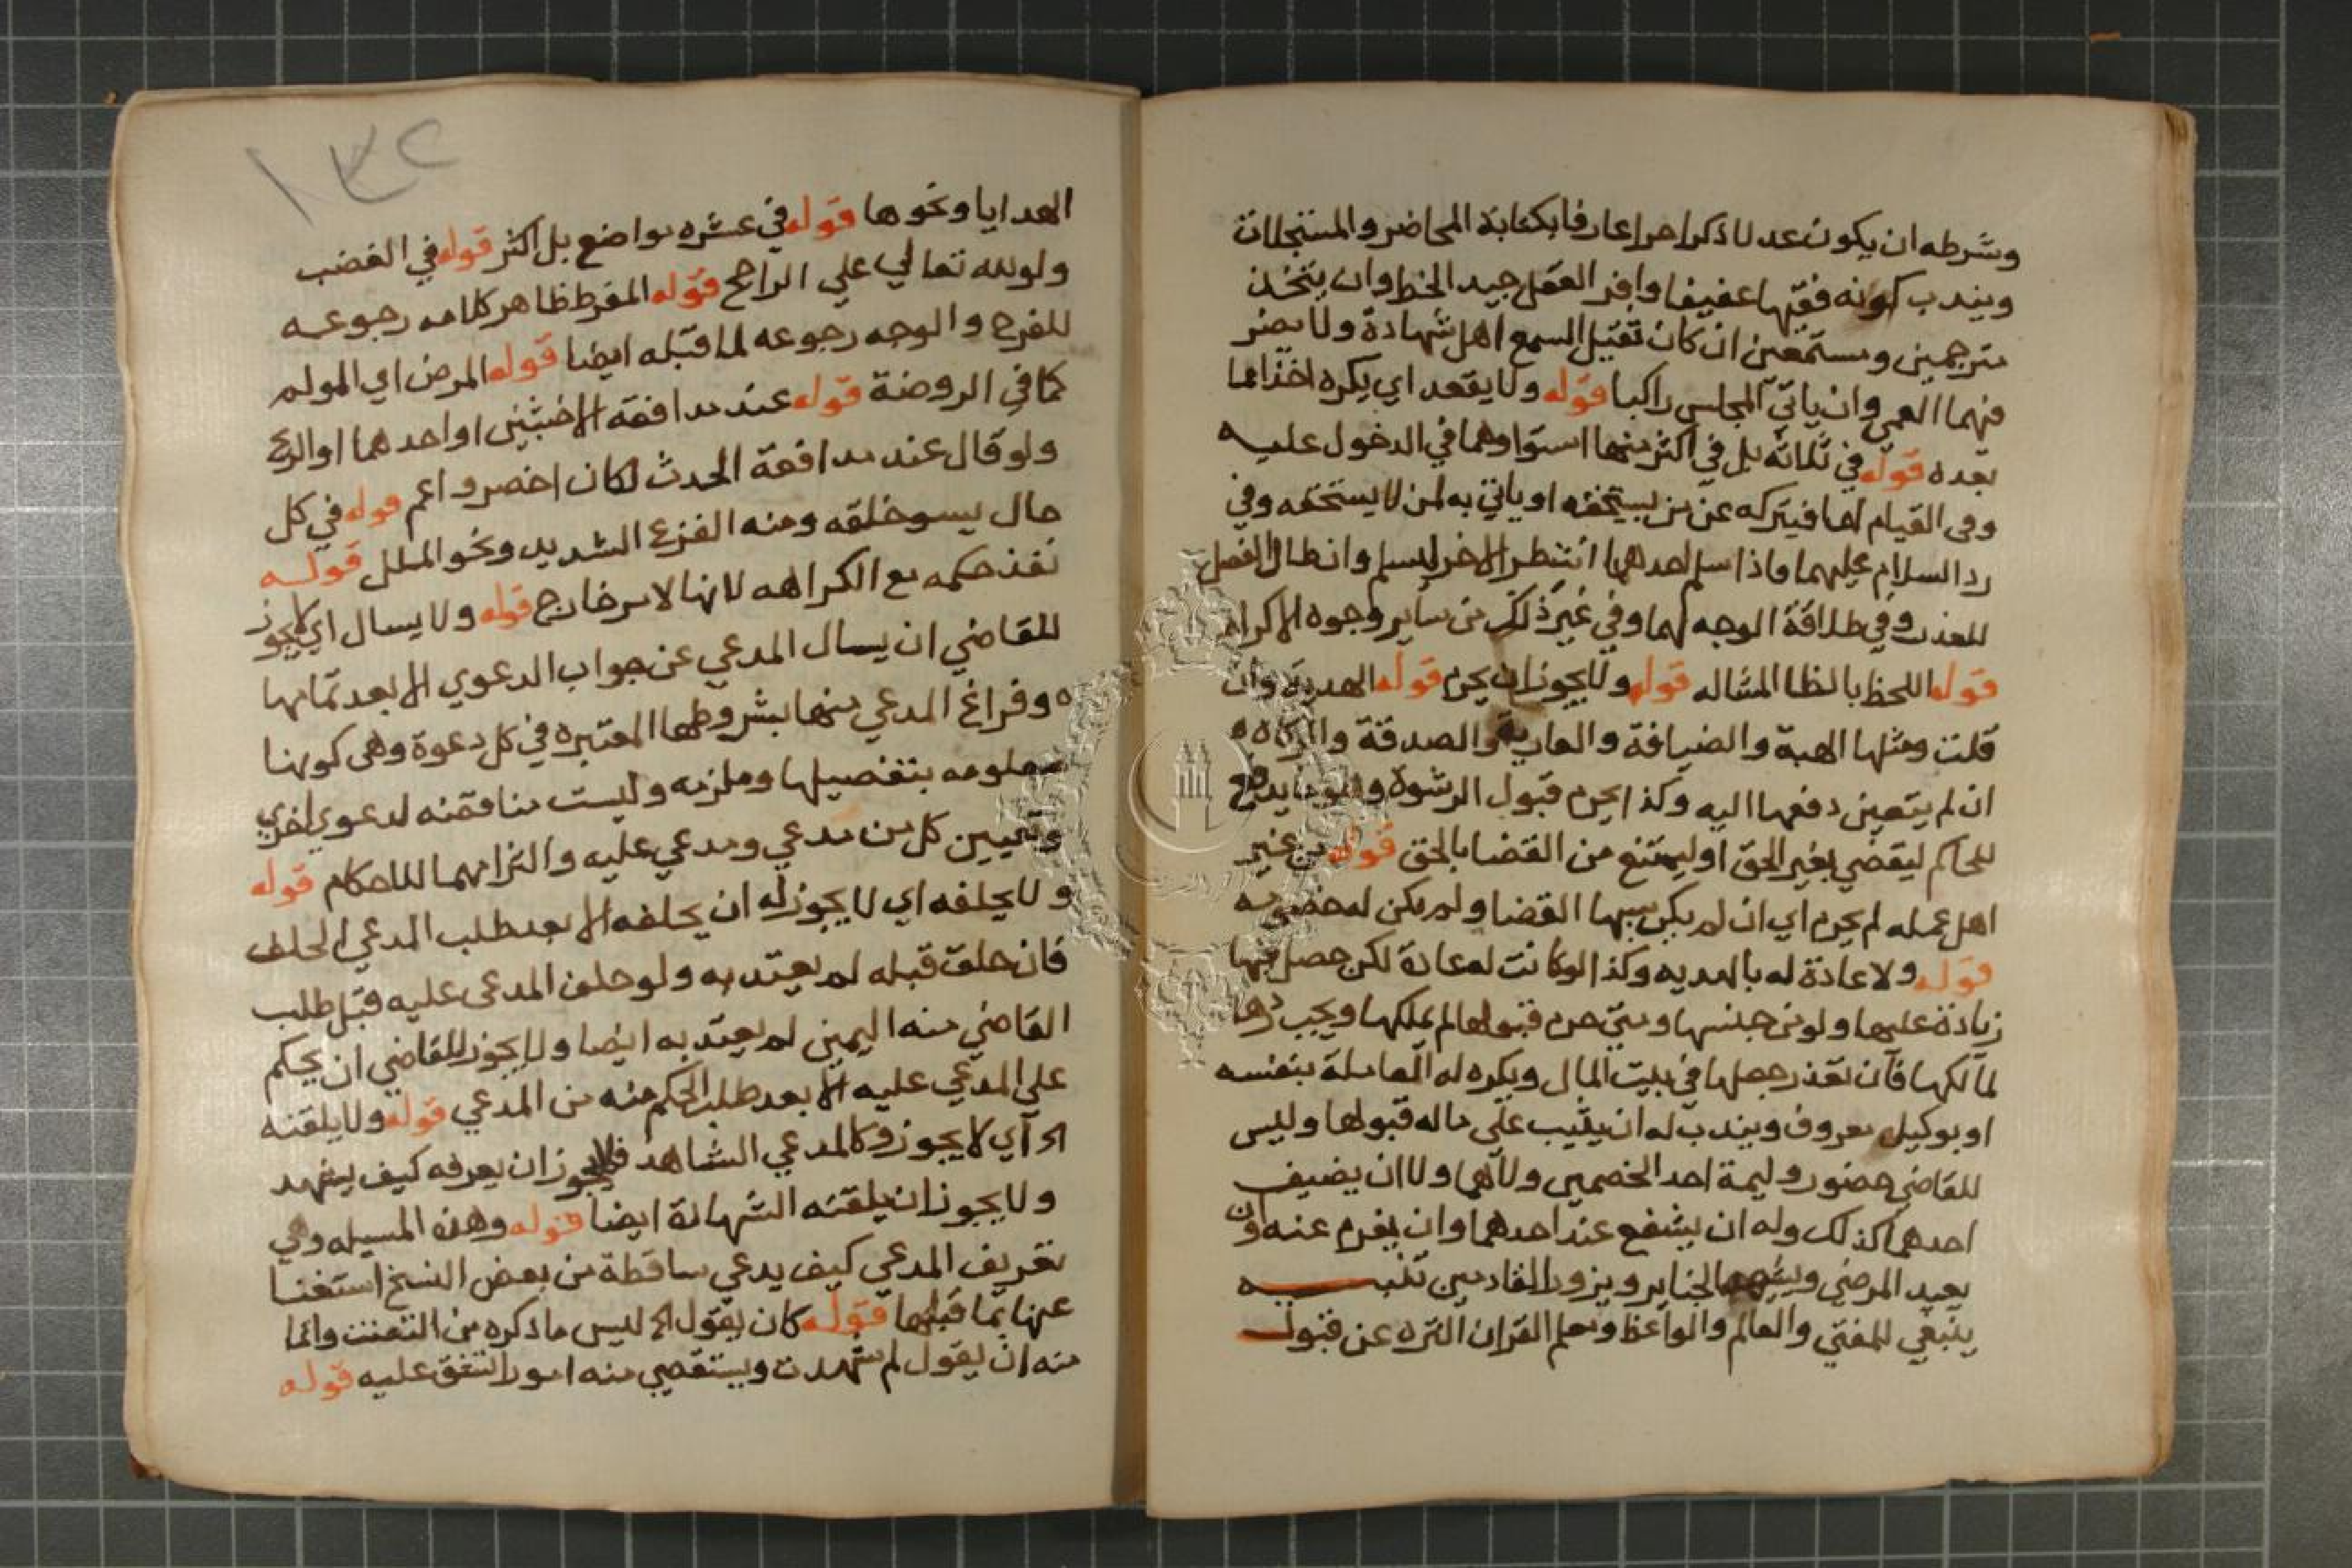 وشرطه ان يكون عدلا ذكرا حرا عارفا بكتابة المحاضر والسجلات
ويندب كونه فقيها عفيفا وافر العقل جيد الخط وان يتخذ
مترجمين ومستمعين ان كان ثقيل السمع اهل شهادة ولا يضر
فيهما العمي وان ياتي المجلس راكبا قوله ولا يقعد اي يكره اخذا مما
بعده قوله في ثلاثة بل في اكثر منها استوا وهما في الدخول عليه
وفي القيام لهما فيتركه عن من يستحقه او ياتي به لمن لا يستحقه وفي
رد السلام عليهما فاذا سلم احدهما انتظر الاخر ليسلم وان طال الفصل
للعذر وفي طلاقة الوجه لهما وفي غير ذلك من ساير وجوه الاكرام
قوله اللحظ بالظا المشاله قوله ولا يجوز اي يحرم قوله الهدية وان
قلت ومثلها الهبة والضيافة والعارية والصدقة والزكاه
ان لم يتعين دفعها اليه وكذا يحرم قبول الرشوة وهو ما يدفع
للحاكم ليقضي بغير الحق او ليمتنع من القضا بالحق قوله من غير
اهل عمله لم يحرم اي ان لم يكن سببها القضا ولم يكن له خصومه
قوله ولا عادة له بالهديه وكذا لو كانت له عادة لكن حصل فيها
زيادة عليها ولو من جنسها ومتي حرم قبولها لم يملكها ويجب ردها
لمالكها فان تعذر جعلها في بيت المال ويكره له المعاملة بنفسه
او بوكيل معروف ويندب له ان يثيب علي ماله قبولها وليس
للقاضي حضور وليمة احد الخصمين ولاهما ولا ان يضيف
احدهما كذلك وله ان يشفع عند احدهما وان يغرم عنه وان
يعيد المرضي ويشهد الجنايز ويزور القادمين تنبيه
ينبغي للمفتي والعالم والواعظ ومعلم القران التنزه عن قبول
١٣٢
الهدايا ونحوها قوله في عشره مواضع بل اكثر قوله في الغضب
ولو لله تعالي علي الراجح قوله المفرط ظاهر كلامه رجوعه
للفرح والوجه رجوعه لما قبله ايضا قوله المرض اي المولم
كما في الروضة قوله عند مدافعة الاخبثين او احدهما او الريح
ولو قال عند مدافعة الحدث لكان اخصر واعم قوله في كل
حال يسو خلقه ومنه الفزع الشديد ونحو الملل قوله
نفذ حكمه مع الكراهه لانها لامر خارج قوله ولا يسال اي لا يجوز
للقاضي ان يسال المدعي عن جواب الدعوي الا بعد تمامها
وفراغ المدعي منها بشروطها المعتبره في كل دعوة وهي كونها
معلومه بتفصيلها وملزمه وليست مناقضه لدعوي اخري
وتعيين كل من مدعي ومدعي عليه والتزامهما للاحكام قوله
ولا يحلفه اي لا يجوز له ان يحلفه الا بعد طلب المدعي الحلف
فان حلف قبله لم يعتد به ولو حلف المدعي عليه قبل طلب
القاضي منه اليمين لم يعتد به ايضا ولا يجوز للقاضي ان يحكم
علي المدعي عليه الا بعد طلب الحكم منه من المدعي قوله ولا يلقنه
الخ اي لا يجوز وكالمدعي الشاهد فلا يجوز ان يعرفه كيف يشهد
ولا يجوز ان يلقنه الشهادة ايضا قوله وهذه المسيله وهي
تعريف المدعي كيف يدعي ساقطة من بعض النسخ استغنا
عنها بما قبلها قوله كان يقول الخ ليس ما ذكره من التعنت وانما
منه ان يقول لم شهدت ويستقصي منه امورا تشق عليه قوله